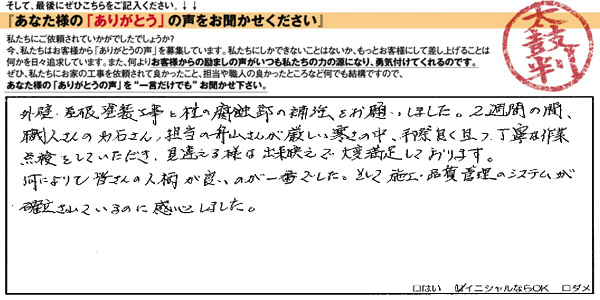 そして、最後にぜひこちらをご記入ください。↓↓
『あなた様の「ありがとう」の声をお聞かせください』
私たちにご依頼されていかがでしたでしょうか?
今、私たちはお客様から「ありがとうの声」を募集しています。私たちにしかできないことはないか、もっとお客様にして差し上げることは
何かを日々追求しています。また、何よりお客様からの励ましの声がいつも私たちの力の源になり、勇気付けてくれるのです。
ぜひ、私たちにお家の工事を依頼されて良かったこと、担当や職人の良かったところなど何でも結構ですので、
あなた様の「ありがとうの声」を“一言だけでも”お聞かせ下さい。
太鼓判
外壁・屋根塗装工事と柱の腐蝕部の補強をお願いしました。2週間の間、
職人さんの力石さん、担当の舟山さんが厳しい寒さの中、手際良く且つ丁寧な作業
点検をしていただき、見違える様な出来映えで大変満足しております。
何によりも皆さんの人柄が良いのが一番でした。そして施工・品質管理のシステムが
確立されているのに感心しました。
□はい ☑イニシャルならOK □ダメ